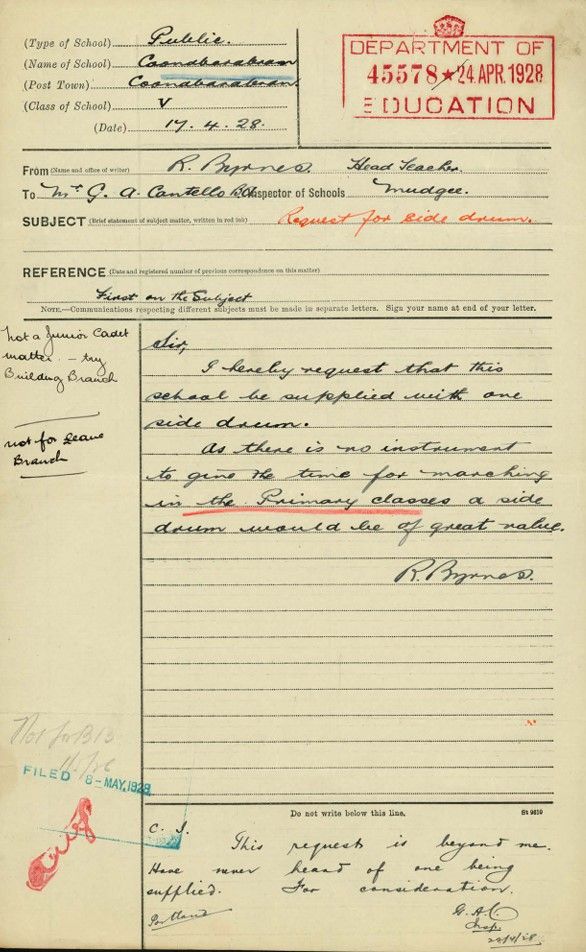 (Type of School) Public.
(Name of School) Coonabarabran
(Post Town) Coonabarabran.
(Class of School) V
(Date) 17. 4. 28.
DEPARTMENT OF
45578 ★ 24 APR. 1928
EDUCATION
From (Name and office of writer) R. Byrnes. Head Teacher.
To Mr G. A. Cantello B.A. Inspector of Schools Mudgee.
SUBJECT (Brief statement of subject matter, written in red ink) Request for side drum.
REFERENCE (Date and registered number of previous correspondence on this matter)
First on the Subject
NOTE.—Communications respecting different subjects must be made in separate letters. Sign your name at end of your letter.
not a Junior Cadet
matter. — try
Building Branch
not for Leave
Branch
Sir,
I hereby request that this
school be supplied with one
side drum.
As there is no instrument
to give the time for marching
in the Primary classes a side
drum would be of great value.
R. Byrnes.
Not for B13
FILED 8-MAY.1928
Do not write below this line.
St 9610
C. I.
This request is beyond me.
Have never heard of one being
supplied. For consideration.
Portland
G.A.C.
Insp.
20/4/28